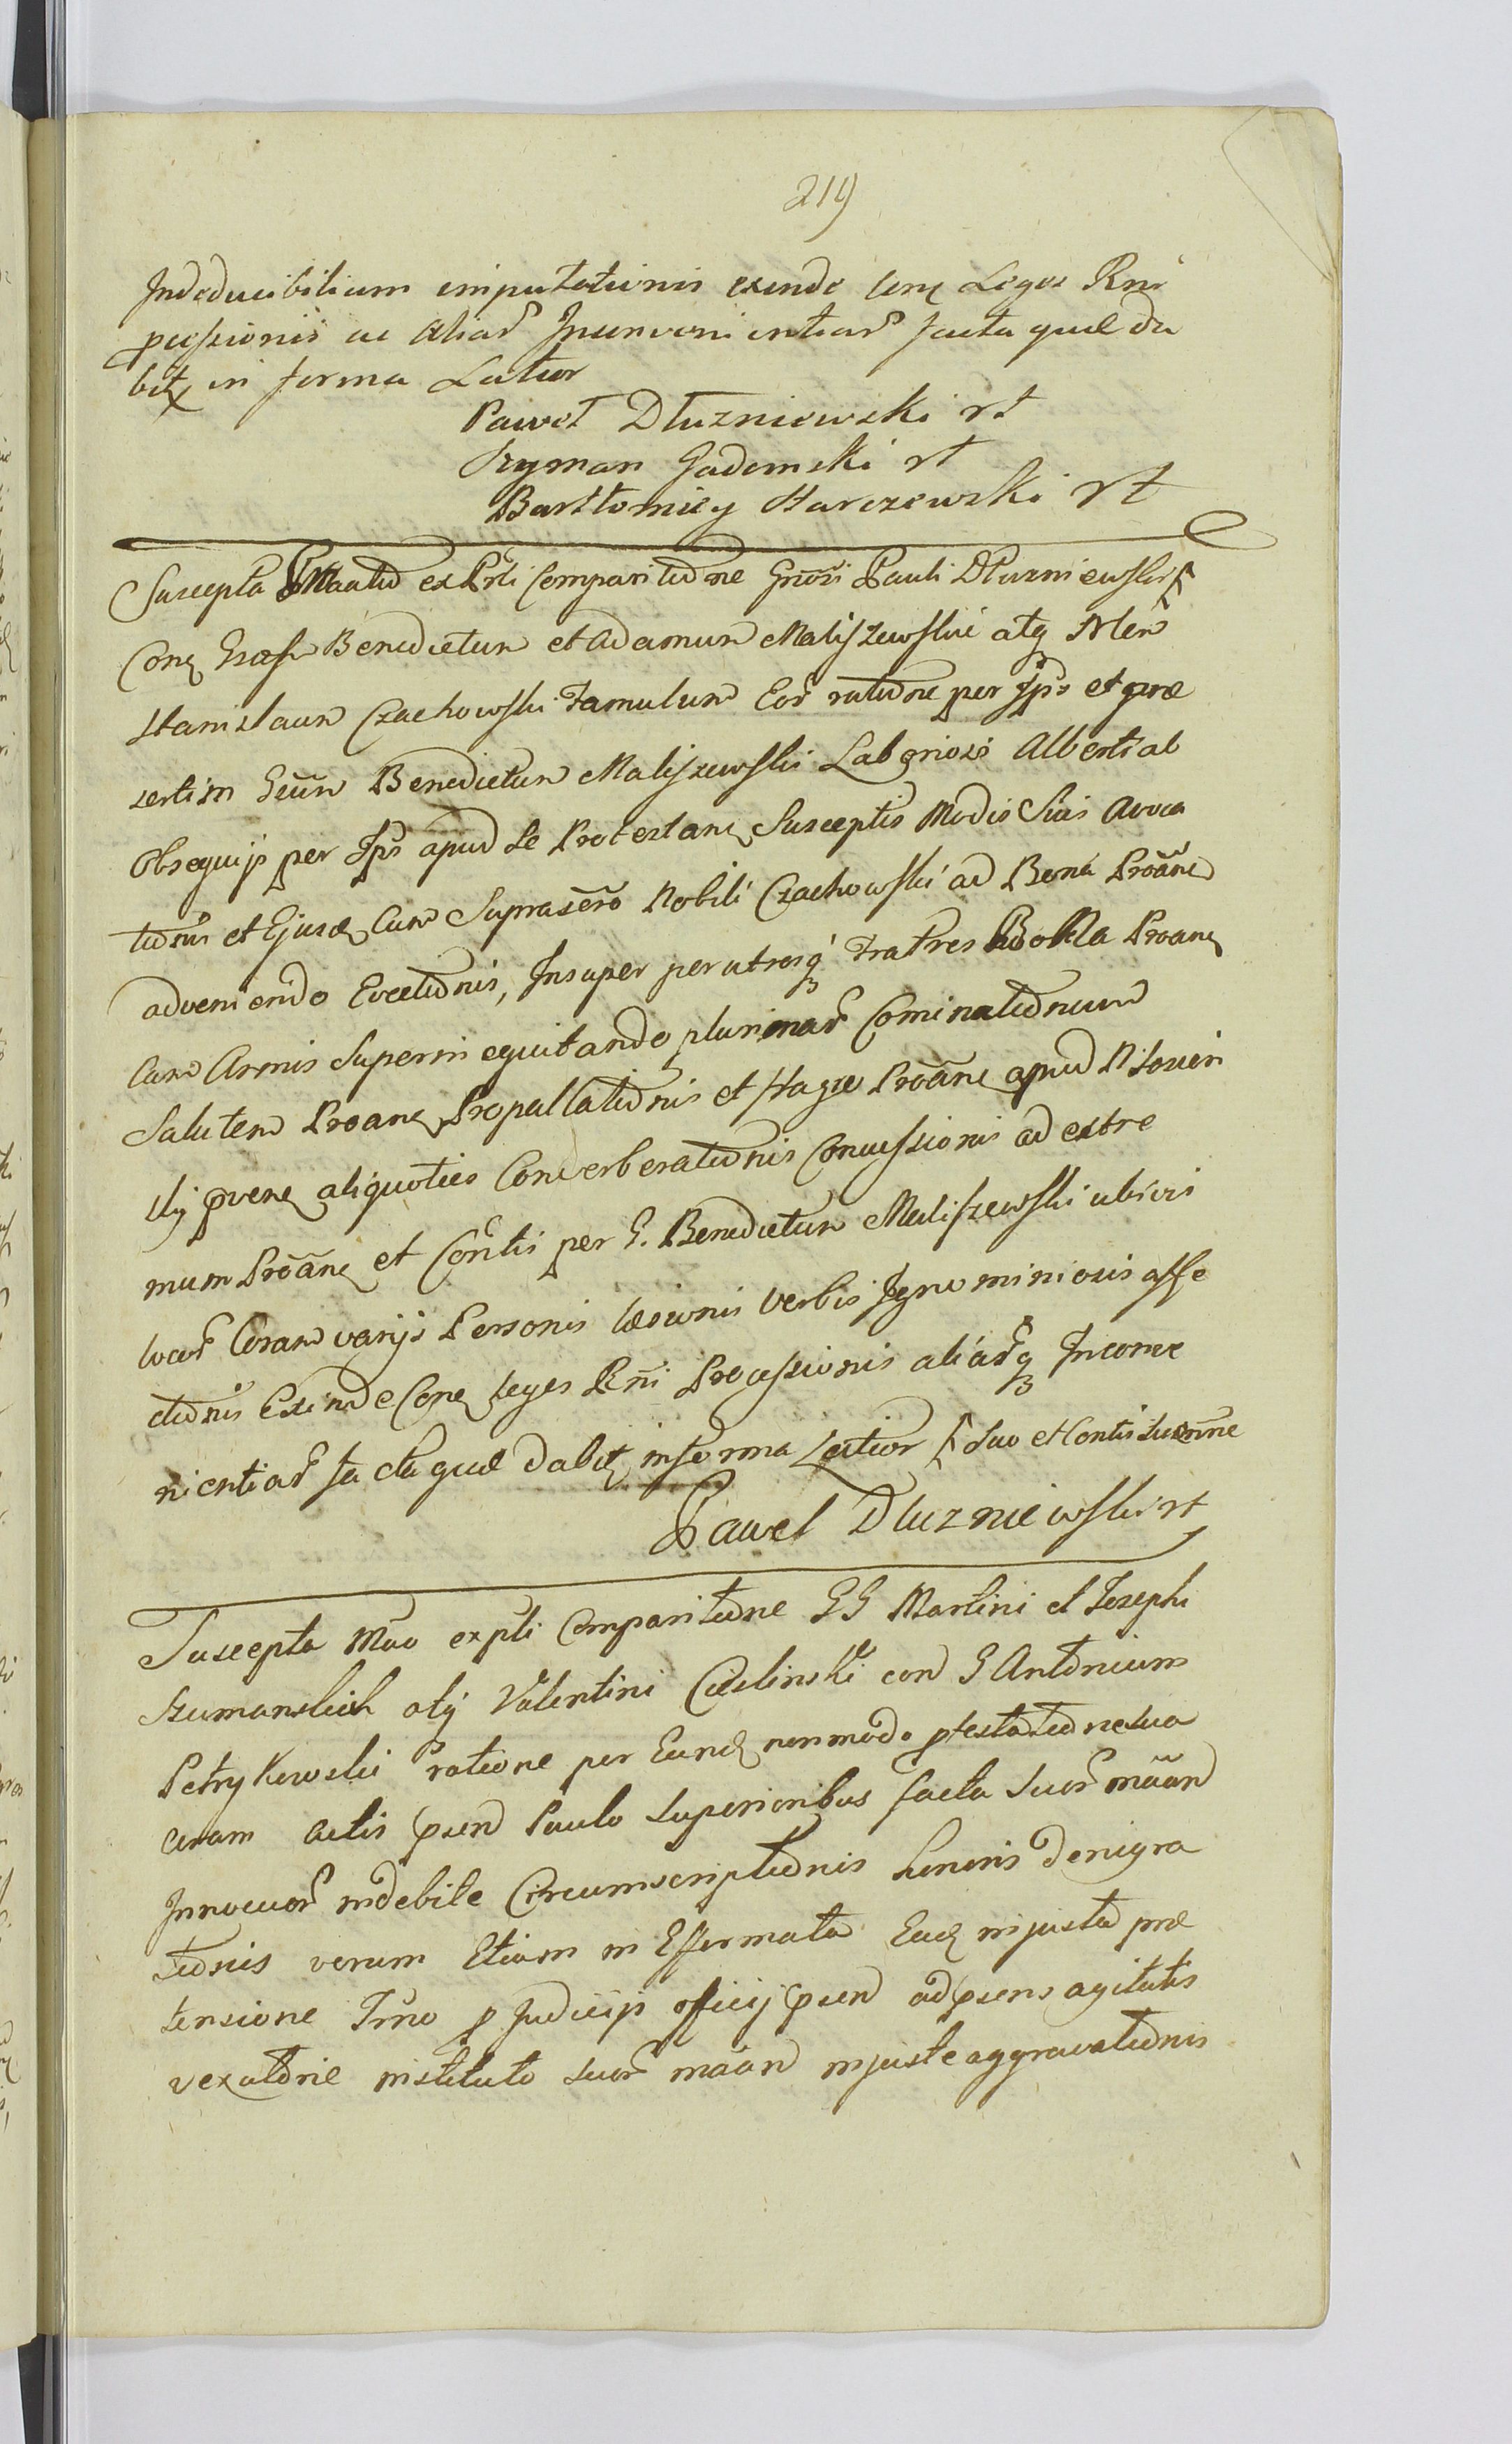 219
Indeducibilium imputationis exinde Conq Leges Rni
pcessionis ac Aliar Inconvenientiar facta quae da
bitq in forma Latior
Paweł Dłuzniewski rt
Szyman Gadomski rt
Bartłomiey Starczewski rt
Suscepta Mãnatio ex Prti Comparitione Gnõsi Pauli Dłuzniewski
Conq Grosos Benedictum et Adamum Maliszewskie atq Nlem
Stanislaum Czachowski Famulum Eor ratione per Ips et prae
sertim Gnm Benedictum Maliszewski Laboriosi Alberti ab
Obsequijs per Ips apud se Protestanq Susceptis Modis Suis Avoca
tionis et Ejusdq Cum Suprascro Nobili Czachowski ad Bona Proãnq
adveniendo Evectionis, Insuper per utrosq Fratres Protestanq
Cum Armis Superin equitando plurimar Cominationum
Salutem Proanq Propallationis et Stagre Proãnq apud N Joven
llij pvenq aliquoties Converberationis Concussionis ad extre
mum Proãnq et Contis per G. Benedictum Maliszewski ubivis
locor Coram varijs Personis laesionis Verbis Ignominiosis affe
ctionis Exinde Conq Leges Rni Processionis aliarq Inconve
nientiar facta quae dabitq in forma Latior suo et Contis suo nne
Pawel Dluzniewski rt
Suscepta Mao ex pti Comparitione GG Martini et Josephi
Szumanskich atq Valentini Cieslinski con G Antonium
Petrykowski ratione per Eundq non modo ptestatione sua
coram Actis psen Paulo Superioribus facta suor mãan
Innocuor indebite Circumscriptionis honoris denigra
tionis verum Etiam in Efformata Eadq injusta prae
tensione Trno p Judicijs officij psen adpsens agitatis
vexatione instituto suor mãan injuste aggravationis